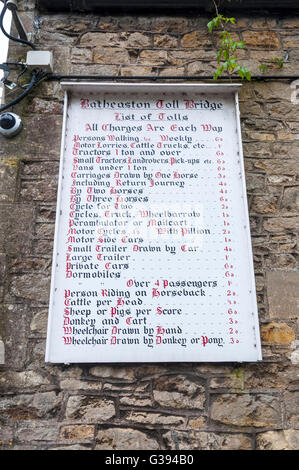 Batheaston Toll Bridge
List of Tolls
All Charges Are Each Way
Persons Walking Weekly
Motor Lorries, Cattle Trucks etc.
Tractors 1 ton and over
Small Tractors, Landrovers, Pick-ups etc.
Vans under 1 ton
Carriages Drawn by One Horse
Including Return Journey
By Two Horses
By Three Horses
Cycle for Two
Cycles, Truck, Wheelbarrow
Perambulator or Mailcart
Motor Cycles With Pillion
Motor Side Cars
Small Trailer Drawn by Car
Large Trailer
Private Cars
Dormobiles
Over 4 Passengers
Person Riding on Horseback
Cattle per Head
Sheep or Pigs per Score
Donkey and Cart
Wheelchair Drawn by Hand
Wheelchair Drawn by Donkey or Pony
alamy